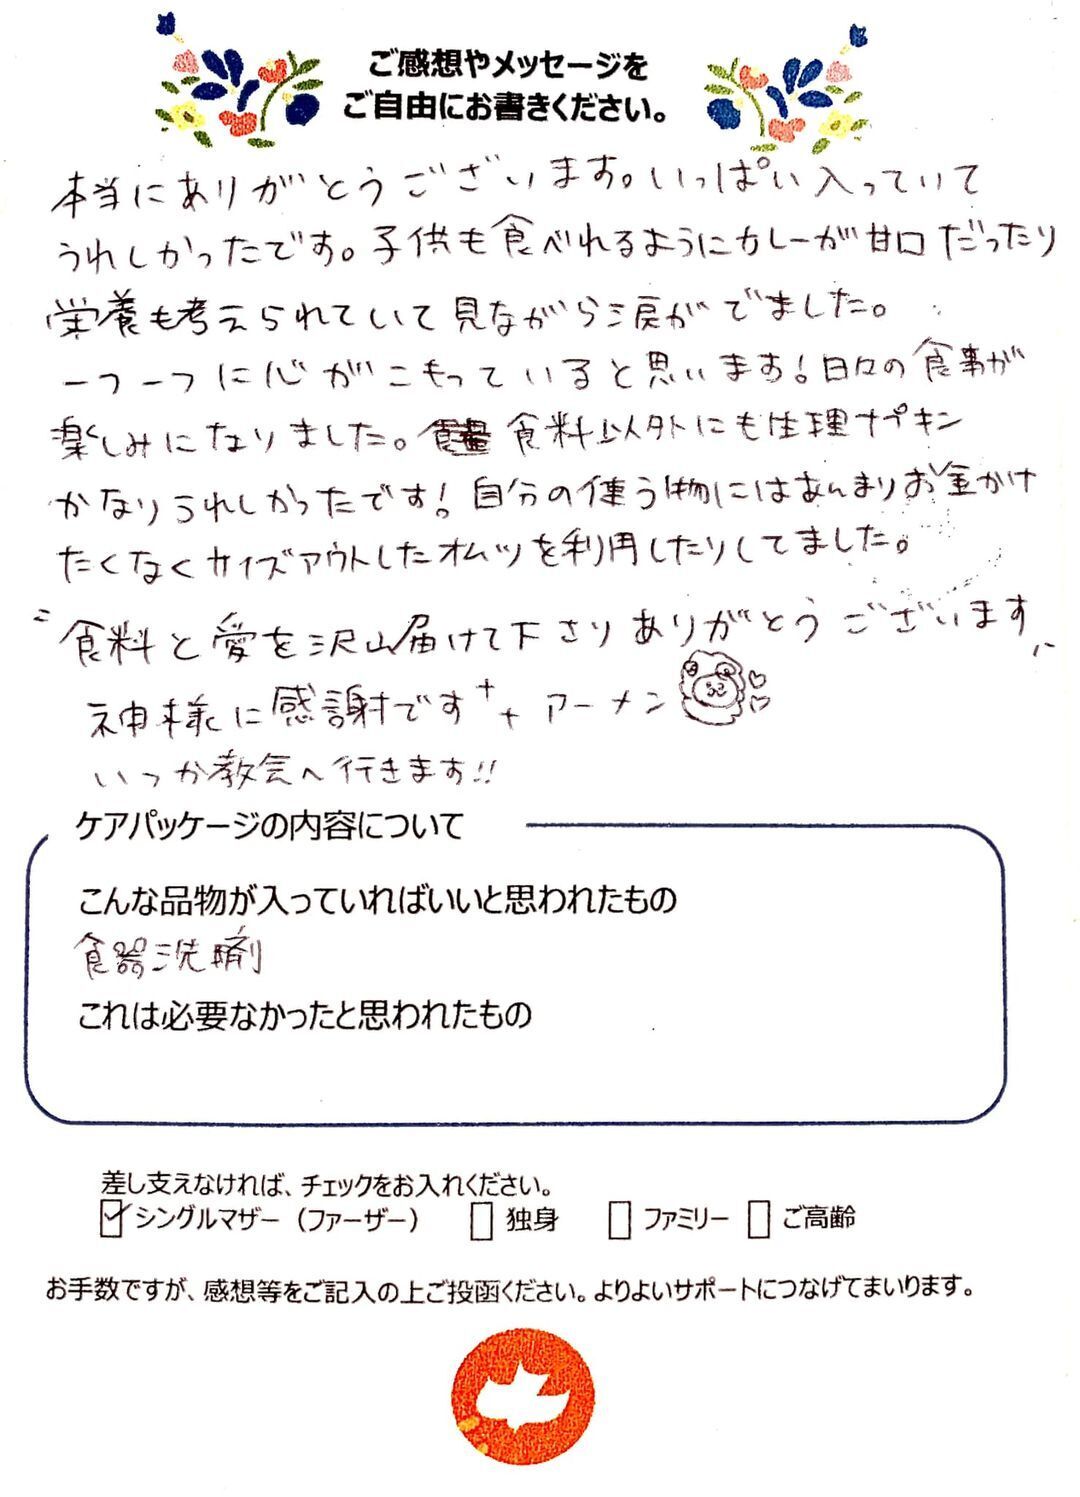 ご感想やメッセージを
ご自由にお書きください。
本当にありがとうございます。いっぱい入っていて
うれしかったです。子供も食べれるようにカレーが甘口だったり
栄養も考えられていて見ながら涙がでました。
一つ一つに心がこもっていると思います!日々の食事が
楽しみになりました。食料以外にも生理ナプキン
かなりうれしかったです!自分の使う物にはあんまりお金かけ
たくなくサイズアウトしたオムツを利用したりしてました。
〝食料と愛を沢山届けて下さりありがとうございます〟
神様に感謝です++ アーメン
いつか教会へ行きます!!
ケアパッケージの内容について
こんな品物が入っていればいいと思われたもの
食器洗剤
これは必要なかったと思われたもの
差し支えなければ、チェックをお入れください。
シングルマザー(ファーザー) 独身 ファミリー ご高齢
お手数ですが、感想等をご記入の上ご投函ください。よりよいサポートにつなげてまいります。